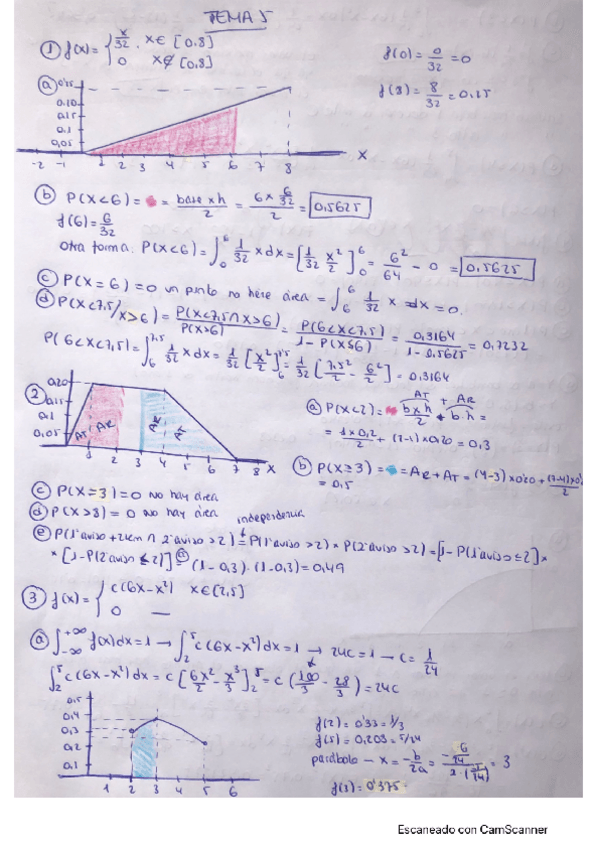 TEMA 5
① f(x) = { x/32 , x∈ [0,8]
0 x∉ [0,8]
f(0) = 0/32 = 0
f(8) = 8/32 = 0,25
ⓐ
0,20
0,15
0,1
0,05
-2 -1 1 2 3 4 5 6 7 8 X
ⓑ P(X<6) = = base x h / 2 = 6 x 6/32 / 2 = 0,5625
f(6) = 6/32
Otra forma: P(X<6) = ∫₀⁶ 1/32 x dx = [1/32 x²/2]₀⁶ = 6²/64 - 0 = 0,5625
ⓒ P(X = 6) = 0 un punto no tiene área = ∫₆⁶ 1/32 x dx = 0.
ⓓ P(X<7,5/X>6) = P(X<7,5 ∩ X>6) / P(X>6) = P(6<X<7,5) / 1 - P(X≤6) = 0,3164 / 1 - 0,5625 = 0,7232
P(6<X<7,5) = ∫₆^7,5 1/32 x dx = 1/32 [x²/2]₆^7,5 = 1/32 [7,5²/2 - 6²/2] = 0,3164
②
0,20
0,15
0,1
0,05
AT AR AR AT
1 2 3 4 5 6 7 8 X
ⓐ P(X<2) = = AT + AR
b x h / 2 + b·h =
= 1x0,2 / 2 + (2-1) x 0,20 = 0,3
ⓑ P(X≥3) = = AR + AT = (4-3) x 0,20 +
= 0,5
ⓒ P(X=3) = 0 no hay área
ⓓ P(X>8) = 0 no hay área
independencia
ⓔ P(1ºaviso +2km ∩ 2ºaviso >2) = P(1ºaviso >2) x P(2ºaviso >2) = [1 - P(1ºaviso ≤2)] x
x [1 - P(2ºaviso ≤2)] = (1 - 0,3) · (1 - 0,3) = 0,49
③ f(x) = { c(6x-x²) x∈[2,5]
0 —
ⓐ ∫₋∞^+∞ f(x)dx = 1 → ∫₂⁵ c(6x-x²)dx = 1 → 24c = 1 → c = 1/24
∫₂⁵ c(6x-x²)dx = c [6x²/2 - x³/3]₂⁵ = c (100/3 - 28/3) = 24c
0,5
0,4
0,3
0,2
0,1
1 2 3 4 5 6
f(2) = 0'33 = 1/3
f(5) = 0,203 = 5/24
parábola - x = -b/2a = = 3
f(3) = 0'375
Escaneado con CamScanner